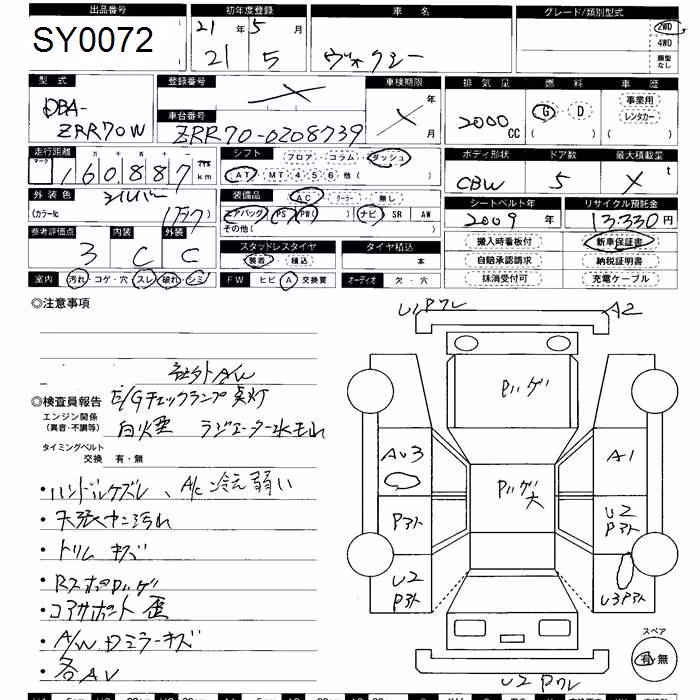 出品番号 初年度登録 車 名 グレード/類別型式
SY0072 21年 5月 2WD
21 5 ヴォクシー 4WD
類型なし
型 式 登録番号 車検期限 排気量 燃 料 車 歴
DBA- 年 2000 CC G・D 事業用
ZRR70W 月 ( ) レンタカー
車台番号 ( )
ZRR70-0208739
走行距離 シフト フロア・コラム・ダッシュ ボディ形状 ドア数 最大積載量
マーク 十 万 千 百 十
160,887 km AT・MT 4 5 6 他 ( ) CBW 5 X t
外 装 色 シルバー 装備品 AC・クーラー・無し シートベルト年 リサイクル預託金
(カラーNo. 1F7) エアバッグ PS PW( ) ナビ SR AW 2009年 13,330円
その他( )
参考評価点 内装 外装 スタッドレスタイヤ タイヤ積込 搬入時看板付 新車保証書
3 C C 装着・積込 本 自賠承認請求 納税証明書
室内 汚れ・コゲ・穴・スレ・破れ・シミ FW ヒビ・A・交換要 オーディオ 欠・穴 抹消受付可 充電ケーブル
◎注意事項 U1Pワレ A2
社外A/W
◎検査員報告 E/Gチェックランプ点灯
エンジン関係
(異音・不調等) 白煙 ラジエーター水モレ
タイミングベルト
交換 有・無
・ハンドルケズレ、A/C冷え弱い
・天張ヤニ汚れ
・トリム キズ
・RスポPハゲ
・コアサポート 歪
・A/W Dミラーキズ
・各AU
Pハゲ
AU3 A1
Pハゲ大
Pアト U2
Pアト
U2
Pアト U3Pアト
スペア
有・無
U2Pワレ